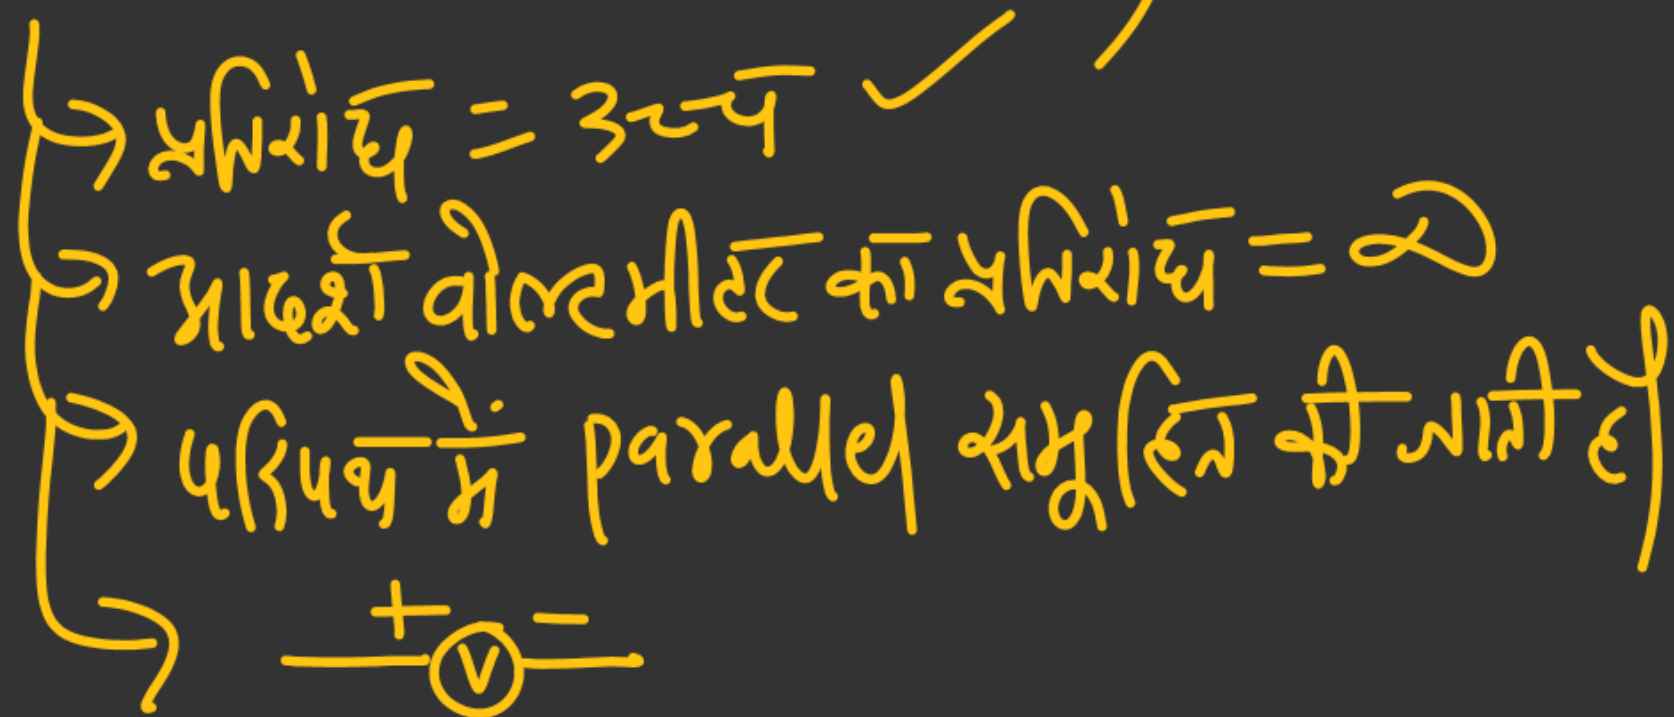 → प्रतिरोध = उच्च ✓
→ आदर्श वोल्टमीटर का प्रतिरोध = ∞
→ परिपथ में parallel समुहित की जाती है
→ + V −